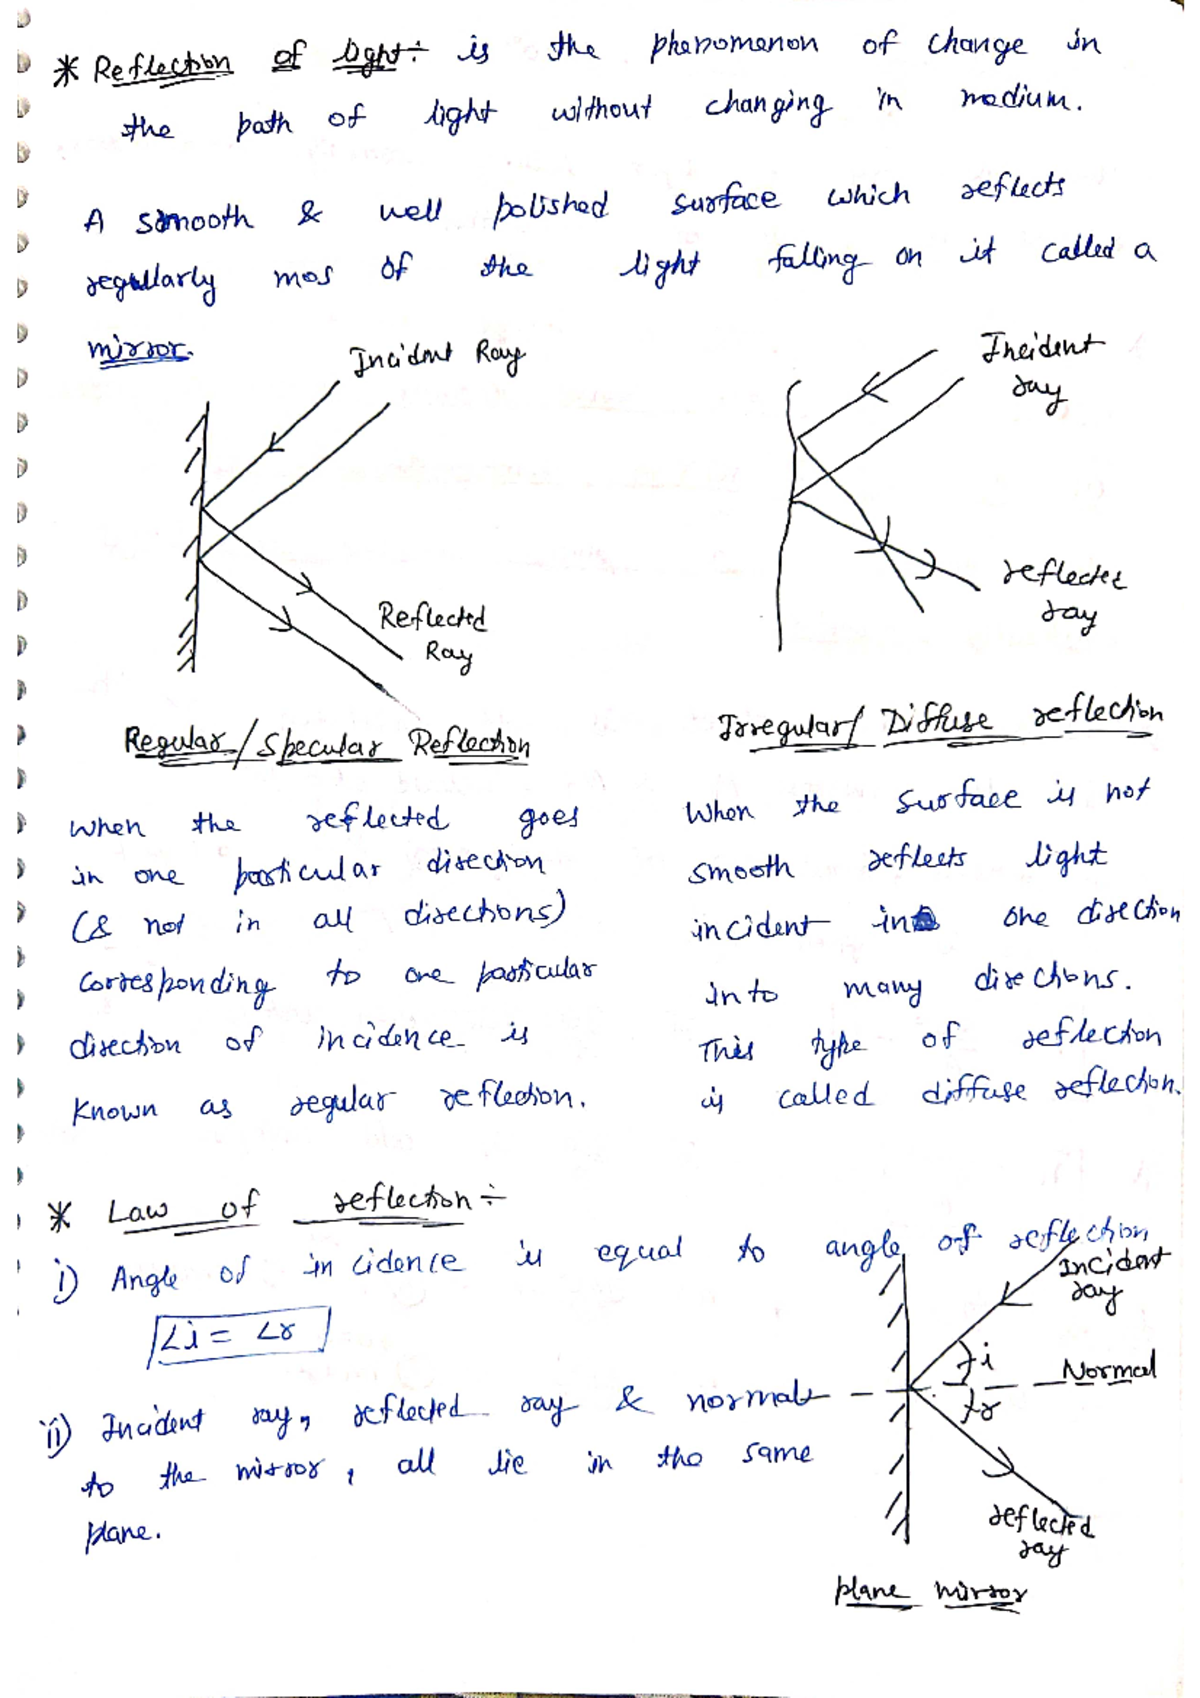 * Reflection of light ÷ is the phenomenon of change in
the path of light without changing in medium.
A smooth & well polished surface which reflects
regullarly mos of the light falling on it called a
mirror.
Incident Ray
Reflected
Ray
Regular/Specular Reflection
Incident
ray
reflected
ray
Irregular/ Diffuse reflection
When the reflected goes
in one particular direction
(& not in all directions)
corresponding to one particular
direction of incidence is
known as regular reflection.
When the surface is not
smooth reflects light
incident in one direction
into many directions.
This type of reflection
is called diffuse reflection.
* Law of reflection ÷
i) Angle of incidence is equal to angle of reflection
∠i = ∠r
ii) Incident ray, reflected ray & normal
to the mirror, all lie in the same
plane.
Incident
ray
i
Normal
r
reflected
ray
plane mirror